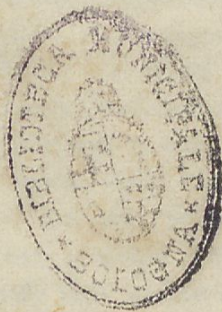 BIBLIOTECA MUNICIPALE
* BOLOGNA *